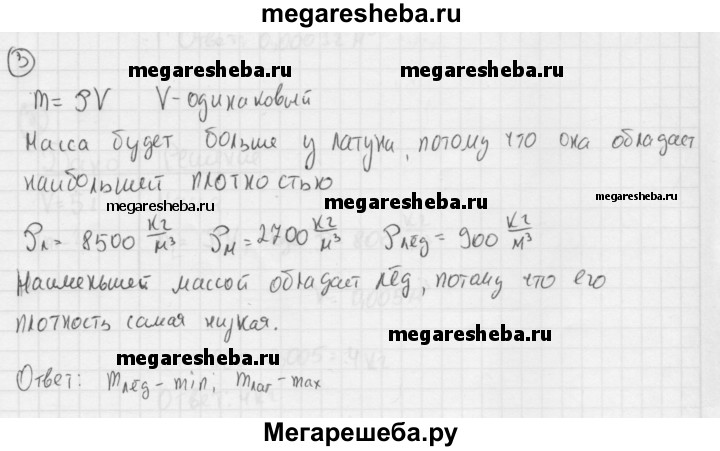 megaresheba.ru
3
megaresheba.ru megaresheba.ru
m = ρV V - одинаковый
Масса будет больше у латуни, потому что она обладает
наибольшей плотностью
megaresheba.ru megaresheba.ru
ρл = 8500 кг/м³ ρм = 2700 кг/м³ ρлёд = 900 кг/м³
Наименьшей массой обладает лёд, потому что его
плотность самая низкая.
megaresheba.ru
megaresheba.ru
Ответ: mлёд - min; mлат - max
megaresheba.ru
Мегарешеба.ру